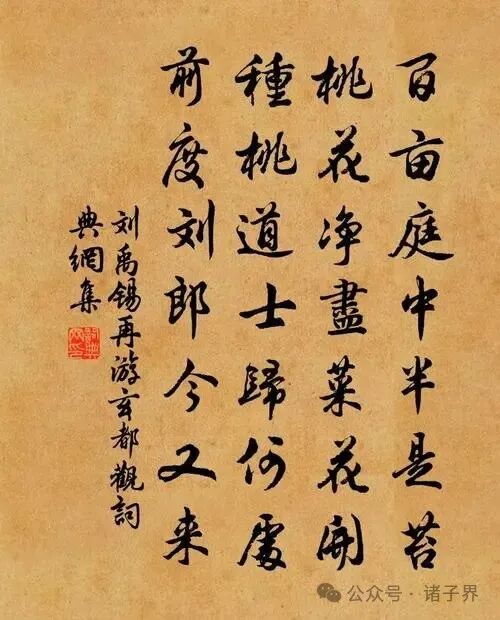 百亩庭中半是苔
桃花净盡菜花開
種桃道士歸何處
前度刘郎今又来
刘禹锡再游玄都觀詞
典網集
公众号·诸子界